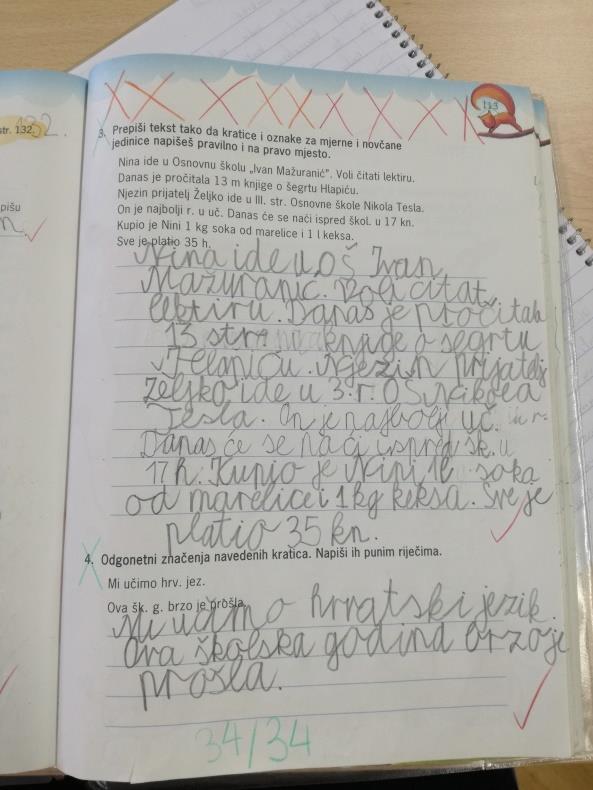 113
str. 132.
132.
3. Prepiši tekst tako da kratice i oznake za mjerne i novčane
jedinice napišeš pravilno i na pravo mjesto.
Nina ide u Osnovnu školu „Ivan Mažuranić”. Voli čitati lektiru.
Danas je pročitala 13 m knjige o šegrtu Hlapiću.
Njezin prijatelj Željko ide u III. str. Osnovne škole Nikola Tesla.
On je najbolji r. u uč. Danas će se naći ispred škol. u 17 kn.
Kupio je Nini 1 kg soka od marelice i 1 l keksa.
Sve je platio 35 h.
pišu
Nina ide u OŠ Ivan
Mažuranić. Voli čitat
lektiru. Danas je pročitala
13 str knjige o šegrtu
Hlapiću. Njezin prijatelj
Željko ide u 3. r. OŠ Nikola
Tesla. On je najbolji uč. u r.
Danas će se naći ispred šk. u
17 h. Kupio je Nini 1l soka
od marelice i 1 kg keksa. Sve je
platio 35 kn.
4. Odgonetni značenja navedenih kratica. Napiši ih punim riječima.
Mi učimo hrv. jez.
Ova šk. g. brzo je prošla.
Mi učimo hrvatski jezik.
Ova školska godina brzo je
prošla.
34/34